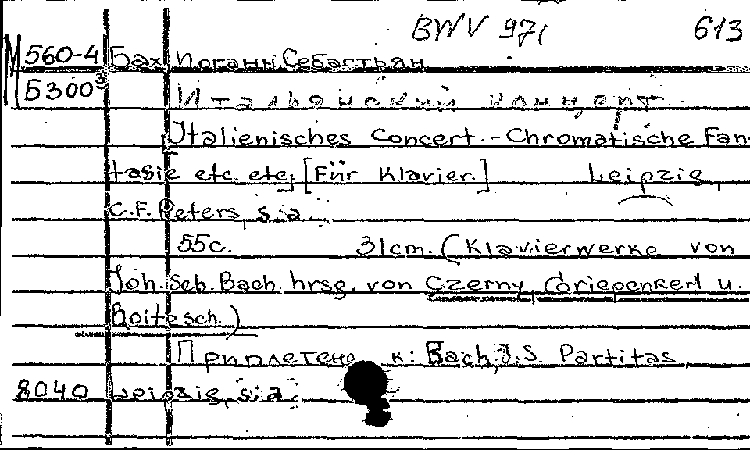 BWV 971 613
М 560-4 Бах Иоганн Себастьян
5300³ Итальянский концерт
Italienisches Concert.-Chromatische Fan-
tasie etc. etc. [Für Klavier.] Leipzig,
C.F. Peters, s.a.
55с. 31cm. (Klavierwerke von
Joh. Seb. Bach hrsg. von Czerny, Griepenkerl u.
Roitzsch.)
Приплетено к: Bach, J.S. Partitas
8040 Leipzig, s.a.